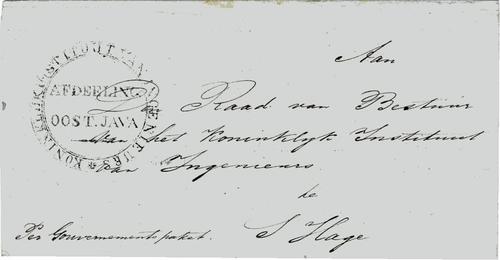 Aan
KONINKLIJK INSTITUUT VAN INGENIEURS
AFDEELING
OOST. JAVA
de Raad van Bestuur
van het Koninklyk Instituut
van Ingenieurs
te
S Hage
Per Gouvernements paket.